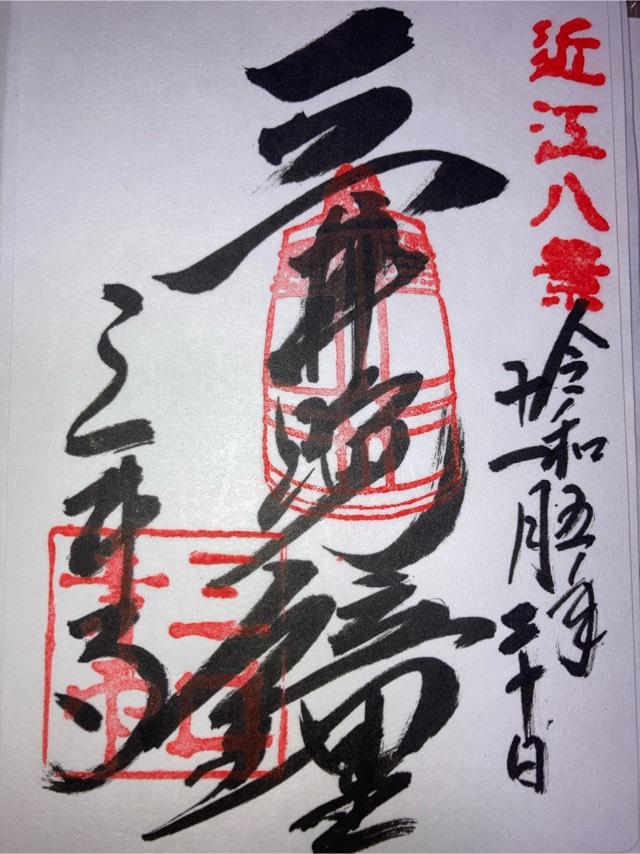 近江八景
令和五年
十一月二十日
三井晩鐘
三井寺
三井寺印